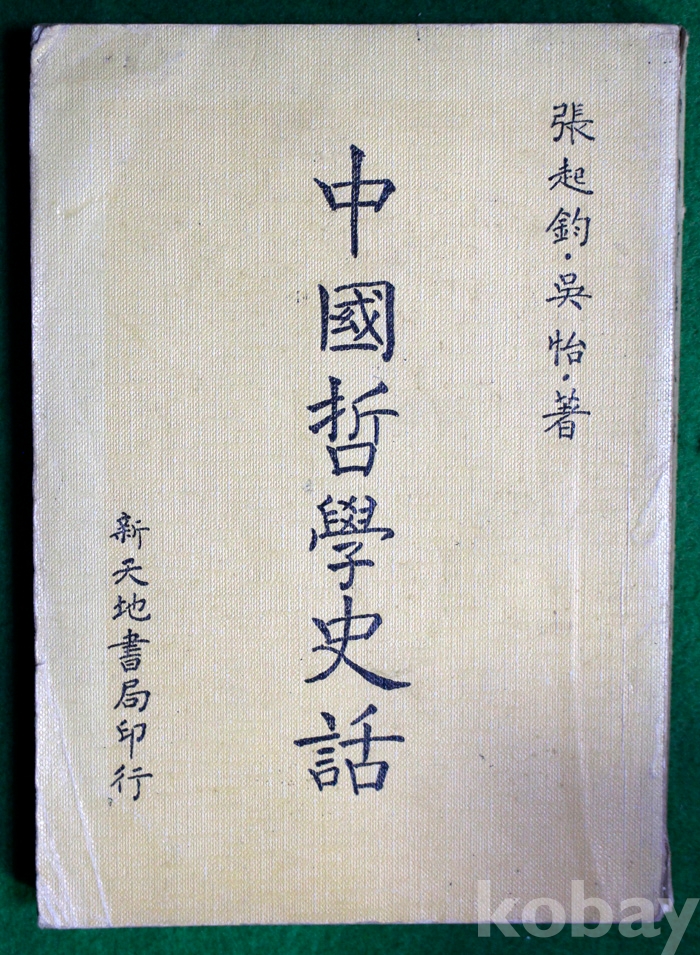 張起鈞·吳怡·著
中國哲學史話
新天地書局印行
kobay